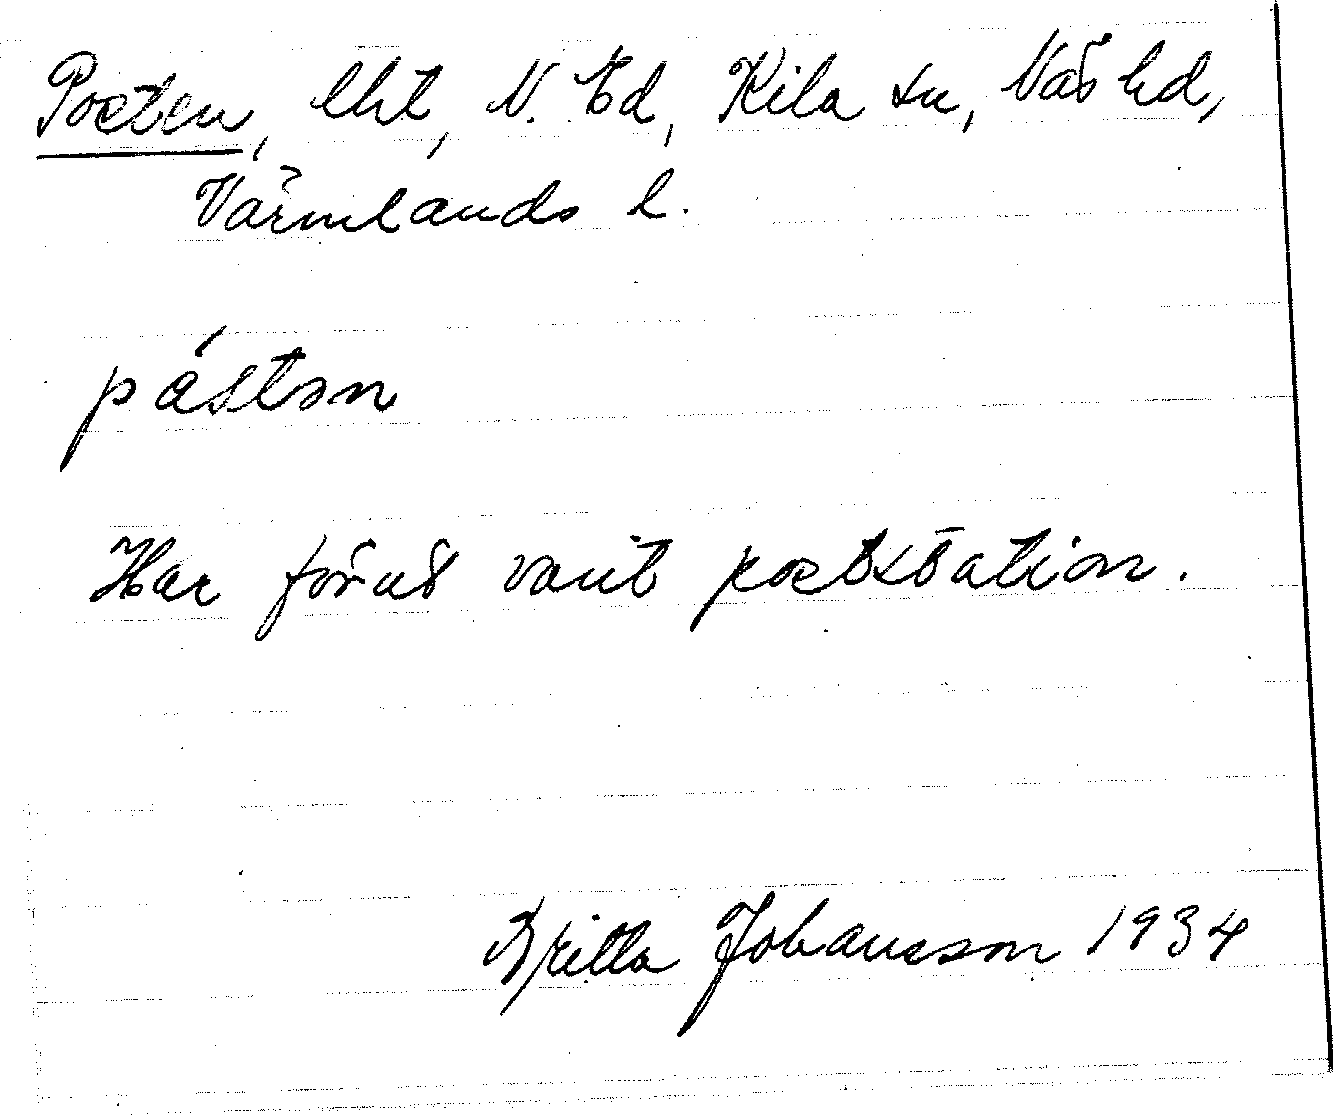 Posten, lht, N. Ed, Kila sn, Näs hd,
Värmlands l.
påstən
Har förut varit poststation.
Britta Johansson 1934